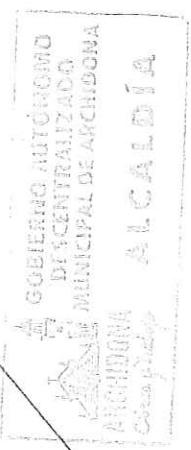 GOBIERNO AUTÓNOMO
DESCENTRALIZADO
MUNICIPAL DE ARCHIDONA
ALCALDÍA
ARCHIDONA